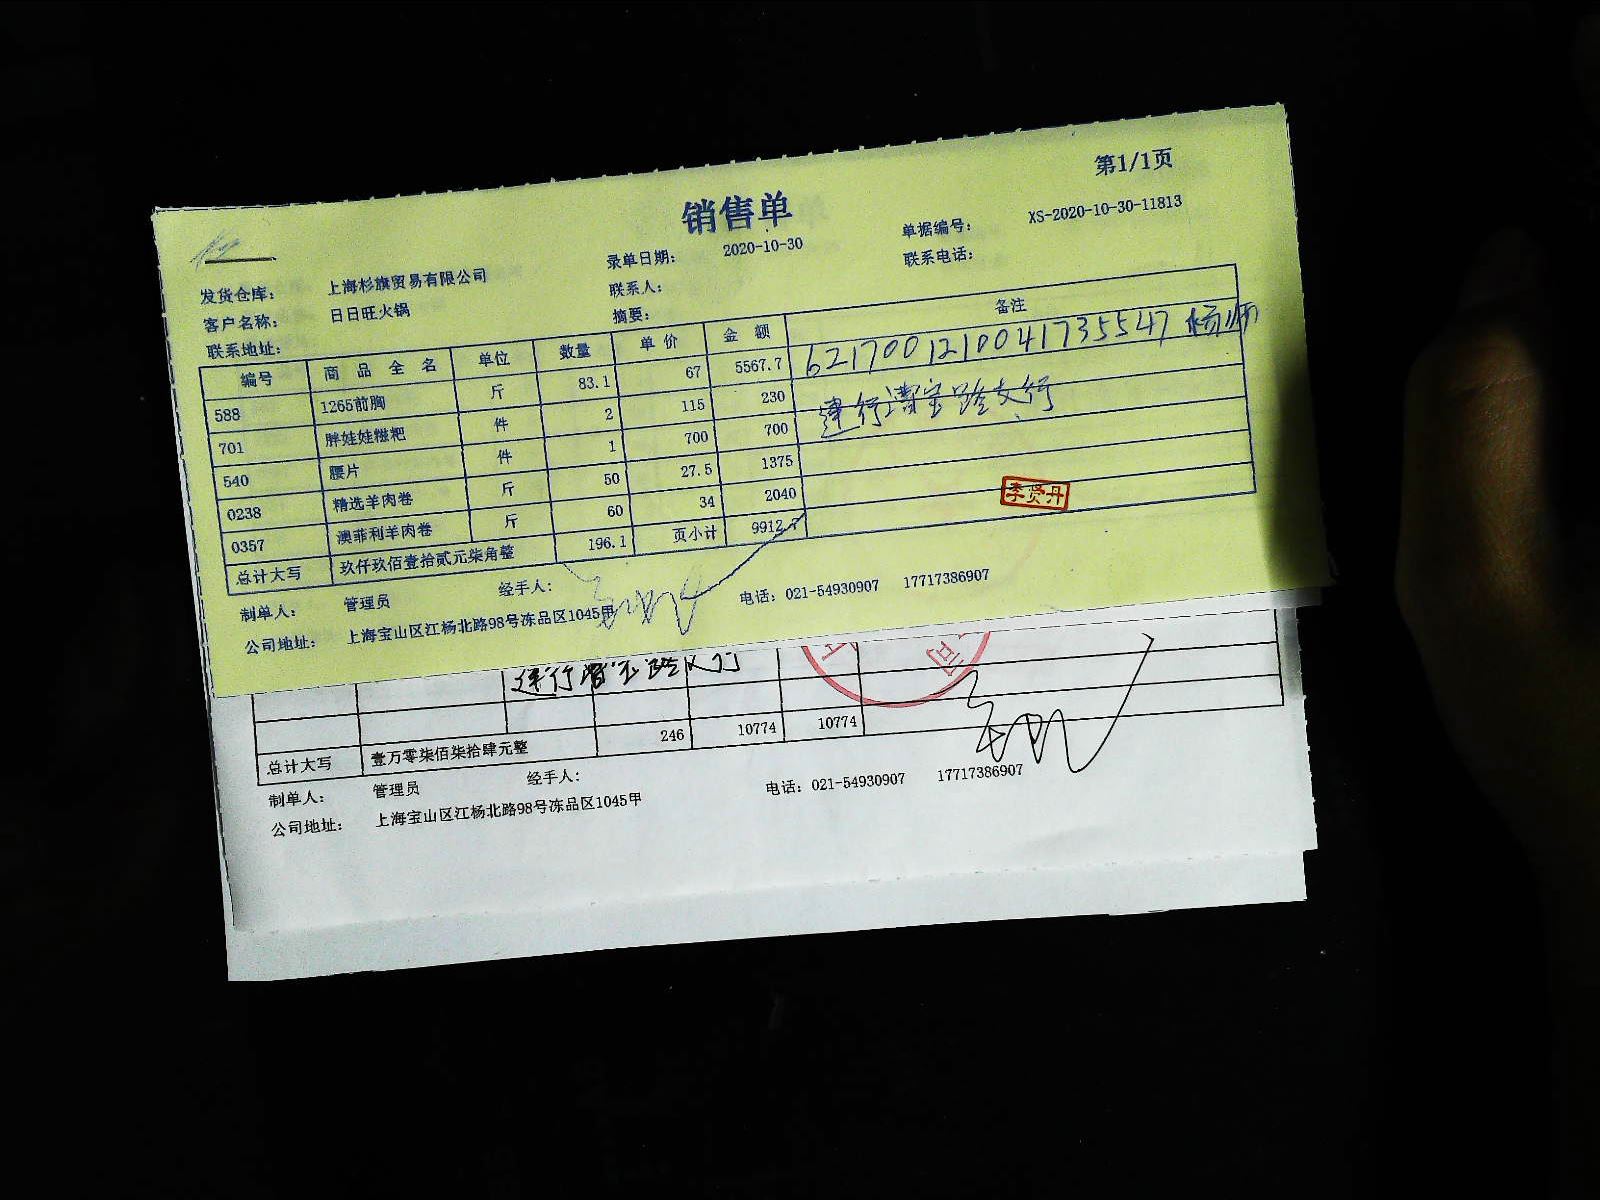 第1/1页
销售单
录单日期： 2020-10-30 单据编号： XS-2020-10-30-11813
发货仓库： 上海杉旗贸易有限公司 联系人： 联系电话：
客户名称： 日日旺火锅 摘要：
联系地址：
编号 商品全名 单位 数量 单价 金额 备注
588 1265前胸 斤 83.1 67 5567.7 6217001210041735547
701 胖娃娃糍粑 件 2 115 230 建行 支行
540 腰片 件 1 700 700
0238 精选羊肉卷 斤 50 27.5 1375
0357 澳菲利羊肉卷 斤 60 34 2040 李贤丹
总计大写 玖仟玖佰壹拾贰元柒角整 196.1 页小计 9912.7
制单人： 管理员 经手人： 电话：021-54930907 17717386907
公司地址： 上海宝山区江杨北路98号冻品区1045甲
建行 路
司
总计大写 壹万零柒佰柒拾肆元整 246 10774 10774
制单人： 管理员 经手人： 电话：021-54930907 17717386907
公司地址： 上海宝山区江杨北路98号冻品区1045甲